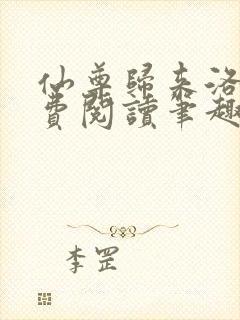 仙尊歸來洛
費閱讀筆趣
李罡